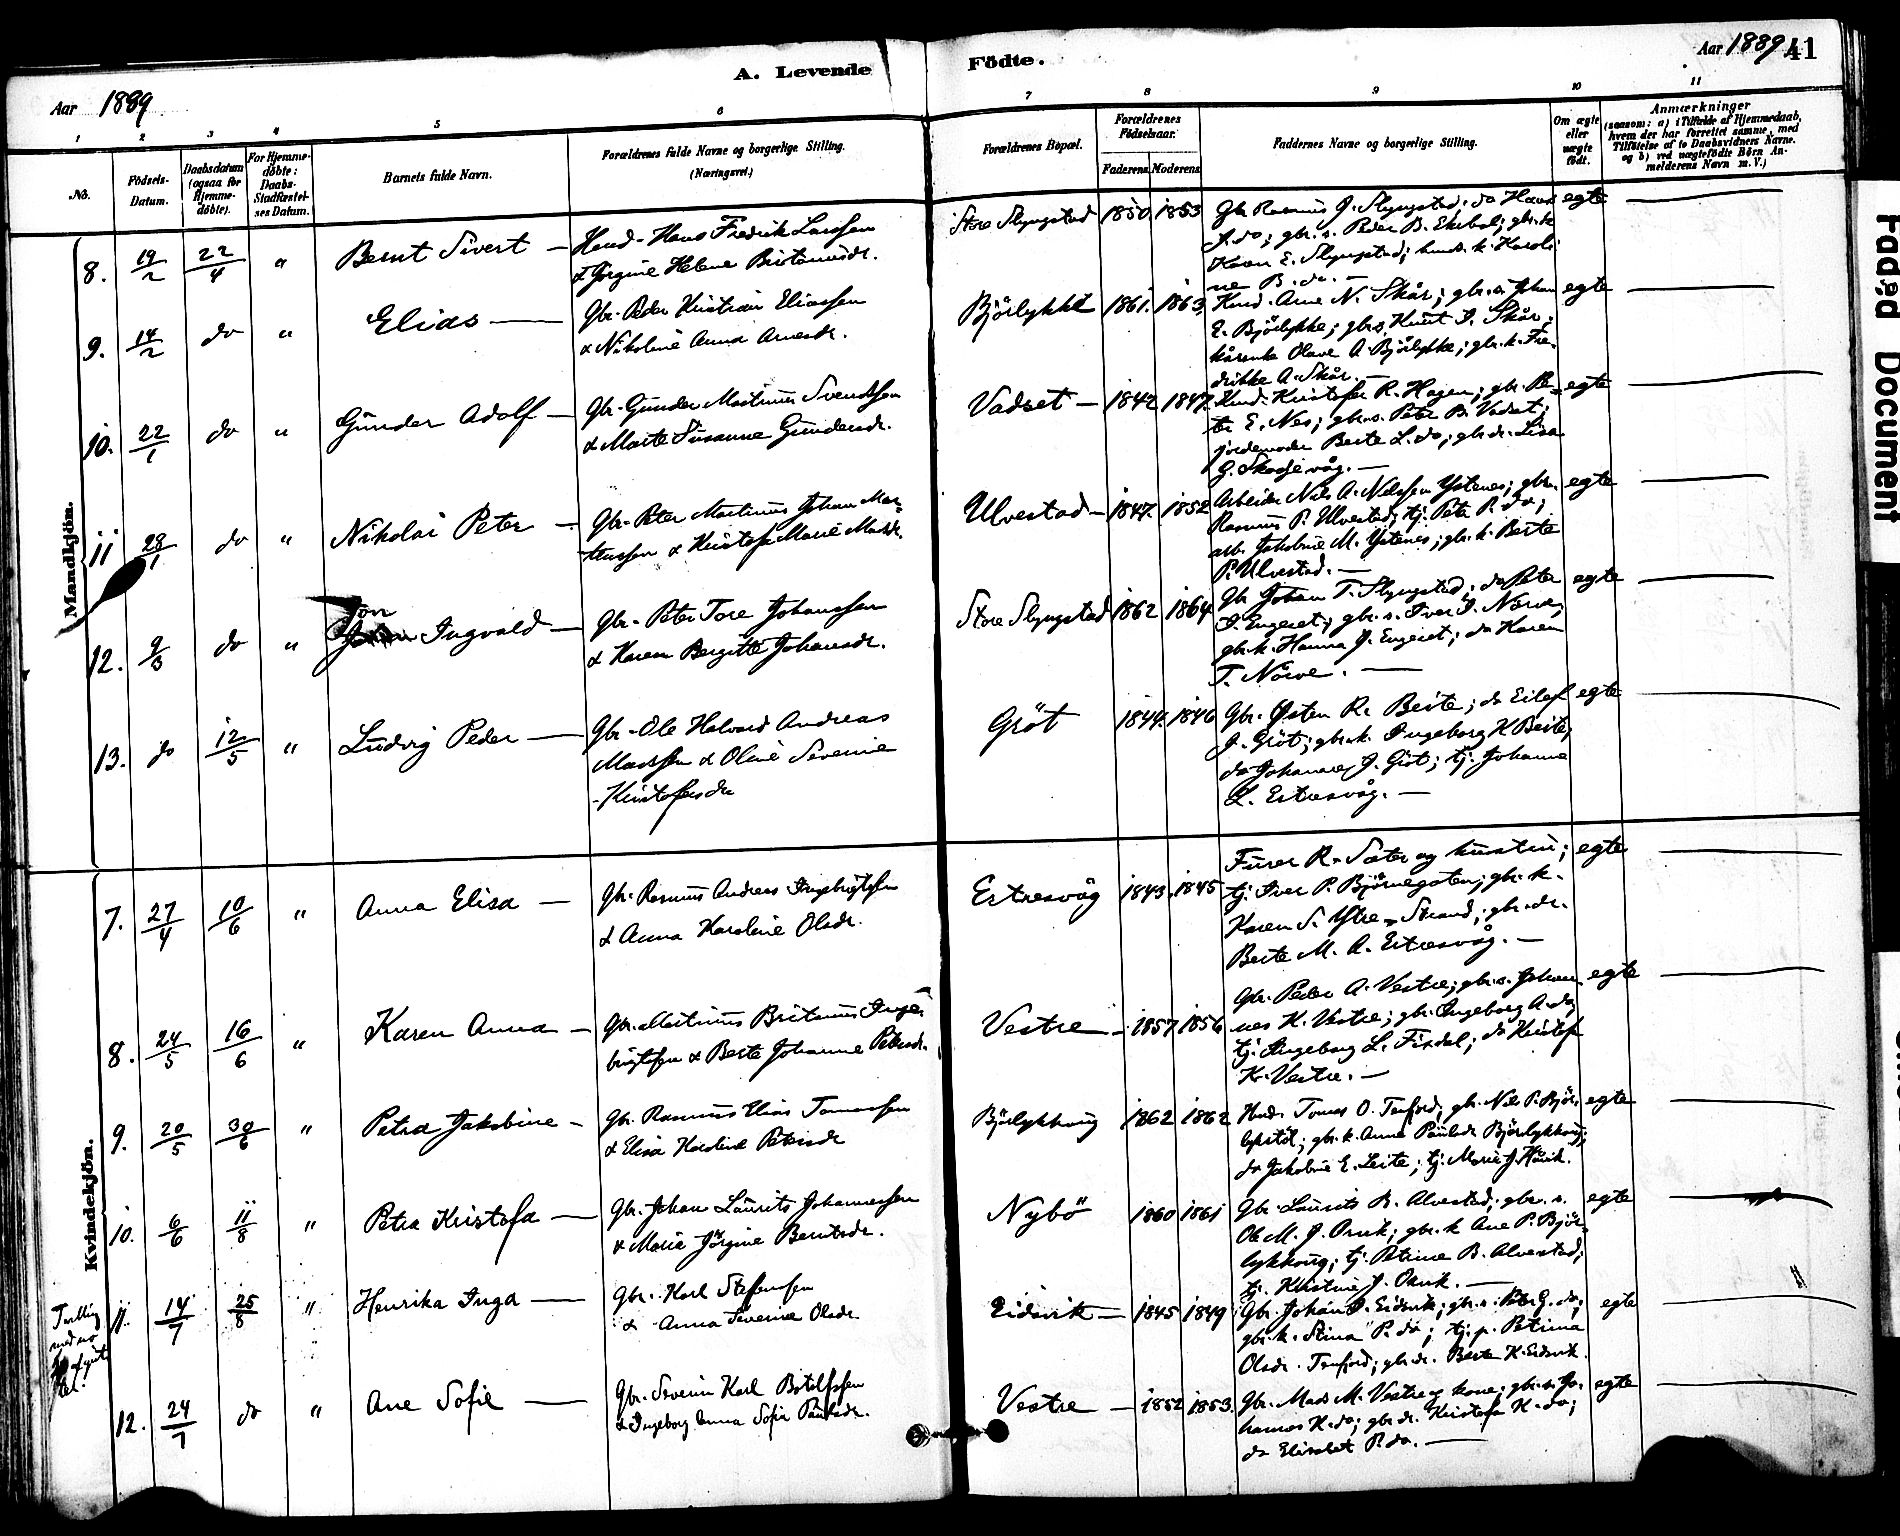 Aar 1889
A. Levende
Födte.
Aar 1889
41
1 2 3 4 5 6 7 8 9 10 11
No.
Födsels-
Datum.
Daabsdatum
(ogsaa for
Hjemme-
döbte).
For Hjemme-
döbte:
Daabs-
Stadfæstel-
ses Datum.
Barnets fulde Navn.
Forældrenes fulde Navne og borgerlige Stilling.
(Næringsvei.)
Forældrenes Bopæl.
Forældrenes
Födselsaar.
Faderens Moderens
Faddernes Navne og borgerlige Stilling.
Om ægte
eller
uægte
födt.
Anmærkninger
(saasom: a) i Tilfælde af Hjemmedaab,
hvem der har forrettet samme, med
Tilföielse af to Daabsvidners Navne.
og b) ved uægtefödte Börn An-
melderens Navn m. V.)
Mandkjön.
8. 19/2 22/4 " Bernt Sivert —
Husm. Hans Fredrik Larssen
& Jörgine Helene Bertinusdr.
Store Slyngstad 1850 1853
Gbr. Rasmus J. Slyngstad; do Hans
J. do; gbr. s. Peder B. Ekebol; gbr. k.
Karen E. Slyngstad; husm. k. Karoli-
ne B. do. —
egte —
9. 14/2 do " Elias —
Gbr. Peder Kristian Eliassen
& Nikoline Anna Arnesdr.
Björlykke 1861. 1863
Husm. Arne N. Skår; gbr. s. Johan
E. Björlykke; gbr. s. Knut J. Skår;
kårenke Olave A. Björlykke; gbr. k. Fre-
drikke A. Skår. —
egte —
10. 22/1 do " Gunder Adolf —
Gbr. Gunder Martinus Svendssen
& Marte Susanne Gundersdr.
Vadset — 1842 1847.
Husm. Kristofer R. Hagen; gbr. Pe-
ter E. Nes; gbr. s. Peter B. Vadset;
jordemoder Berte L. do; gbr. dr. Lisa
G. Skodjevåg. —
egte —
11 28/1 do " Nikolai Peter —
Gbr. Peter Martinus Johan Mar-
tinussen & Kristofa Marie Madsdr.
Ulvestad — 1847. 1852
Arbeider Nils A. Nilssen Ystenes; gbr.
Rasmus P. Ulvestad; tj. Peter P. do;
arb. Jakobine M. Ystenes; gbr. k. Berte
P. Ulvestad. —
egte —
12. 9/3 do " Jon Ingvald —
Gbr. Peter Tore Johanssen
& Karen Bergitte Johansdr.
Store Slyngstad 1862 1864
Gbr. Johan T. Slyngstad; do Peter
J. Engeset; gbr. s. Iver J. Nörve,
gbr. k. Hanna J. Engeset; do Karen
T. Nörve. —
egte —
13. do 12/5 " Ludvig Peder —
Gbr. Ole Halvard Andreas
Madssen & Oline Severine
Kristofersdr
Gröt 1844. 1846
Gbr. Østen R. Beite; do Eilef
J. Gröt; gbr. k. Ingeborg K. Beite;
do Johanne J. Gröt; tj. Johanne
L. Ertresvåg. —
egte —
Kvindekjön.
7. 27/4 10/6 " Anna Elisa —
Gbr. Rasmus Andreas Ingebrigtsen
& Anna Karoline Olsdr.
Ertresvåg 1843. 1845
Furer R. Sæter og hustru;
tj. Iver P. Björnegaten; gbr. k.
Karen S. Ytre-Strand; gbr. dr.
Berte M. A. Ertresvåg. —
egte —
8. 24/5 16/6 " Karen Anna —
Gbr. Martinus Bertinus Inge-
brigtssen & Berte Johanne Petersdr.
Vestre — 1857 1856
Gbr. Peder A. Vestre; gbr. s. Johan-
nes K. Vestre; gbr. Ingeborg A. do;
tj. Ingeborg L. Fisdal; do Kristofa
K. Vestre. —
egte —
9. 20/5 30/6 " Petra Jakobine —
Gbr. Rasmus Elias Tomassen
& Elisa Karoline Petersdr
Björlykhaug 1862 1862
Husm. Tomas O. Tenfjord; gbr. Nils P. Björ-
lykstöl; gbr. k. Anna Paulsdr Björlykhaug;
do Jakobine E. Leite; tj. Marie J. Håvik.
egte —
10. 6/6 11/8 " Petra Kristofa —
Gbr. Johan Laurits Johannessen
& Marie Jörgine Berntsdr.
Nybö 1860 1861
Gbr. Laurits B. Alvestad; gbr. s.
Ole M. J. Orvik; gbr. k. Ane P. Björ-
lykhaug; tj. Petrine B. Alvestad;
tj. Kristine J. Orvik. —
egte —
11. 14/7 25/8 " Henrika Inga —
Gbr. Karl Steffenssen
& Anna Severine Olsdr
Eidsvik — 1845 1849
Gbr. Johan J. Eidsvik; gbr. s. Peter E. do;
gbr. k. Stina P. do; tj. p. Petrina
Olsdr. Tenfjord; gbr. dr. Berte K. Eidsvik.
egte —
12. 24/7 do " Ane Sofie —
Gbr. Severin Karl Botolfssen
& Ingeborg Anna Sofie Paulsdr.
Vestre — 1852 1853.
Gbr. Mads M. Vestre og kone; gbr. s. Jo-
hannes K. do; gbr. dr. Kristofa K. do;
do Elisabet P. do. —
egte —
Faded Document